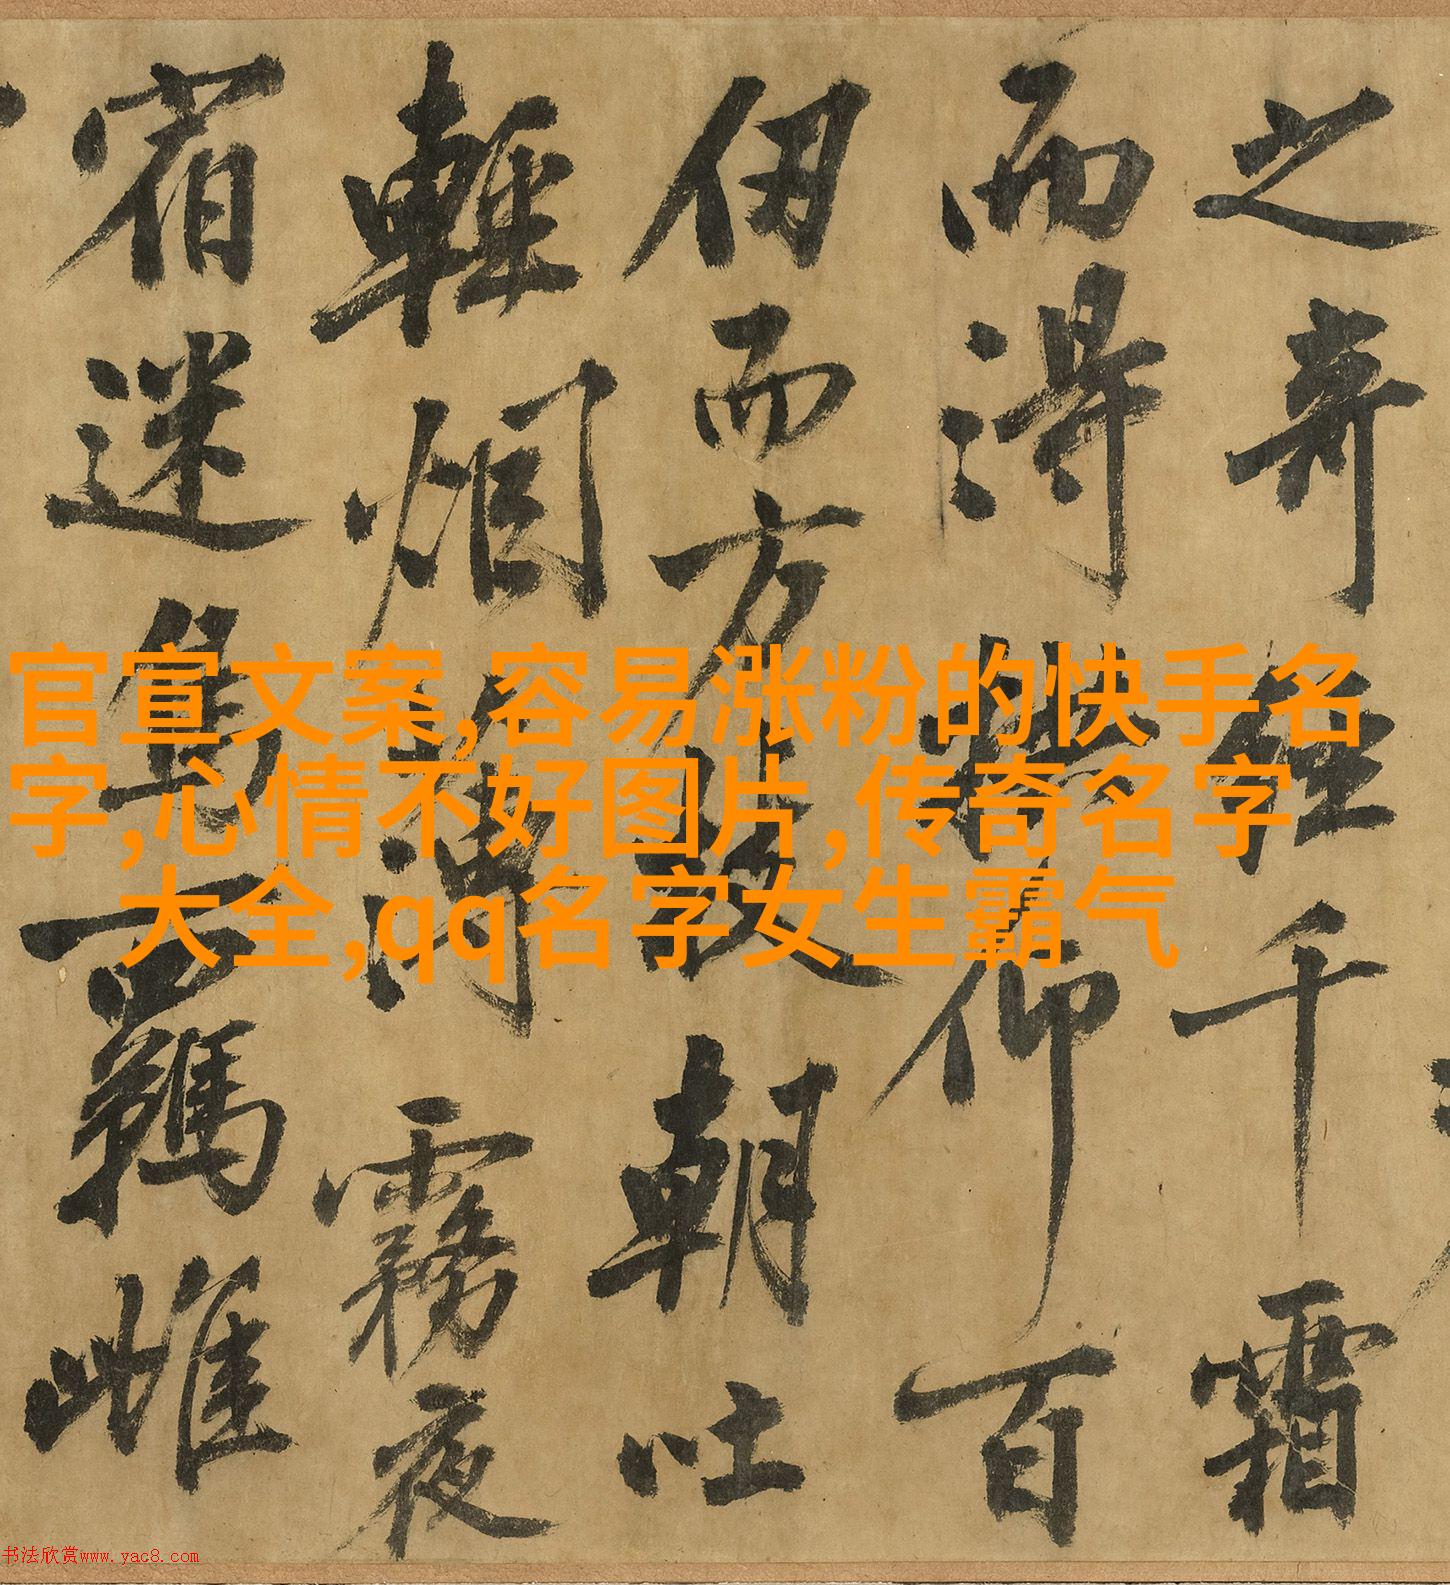 之奇經千霜
而得拱仰百
仞而方枝朝吐
輕烟薄霧夜
宿迷鳥羈雌
官宣文案,容易涨粉的快手名
字,心情不好图片,传奇名字
大全,qq名字女生霸气
书法欣赏www.yac8.com